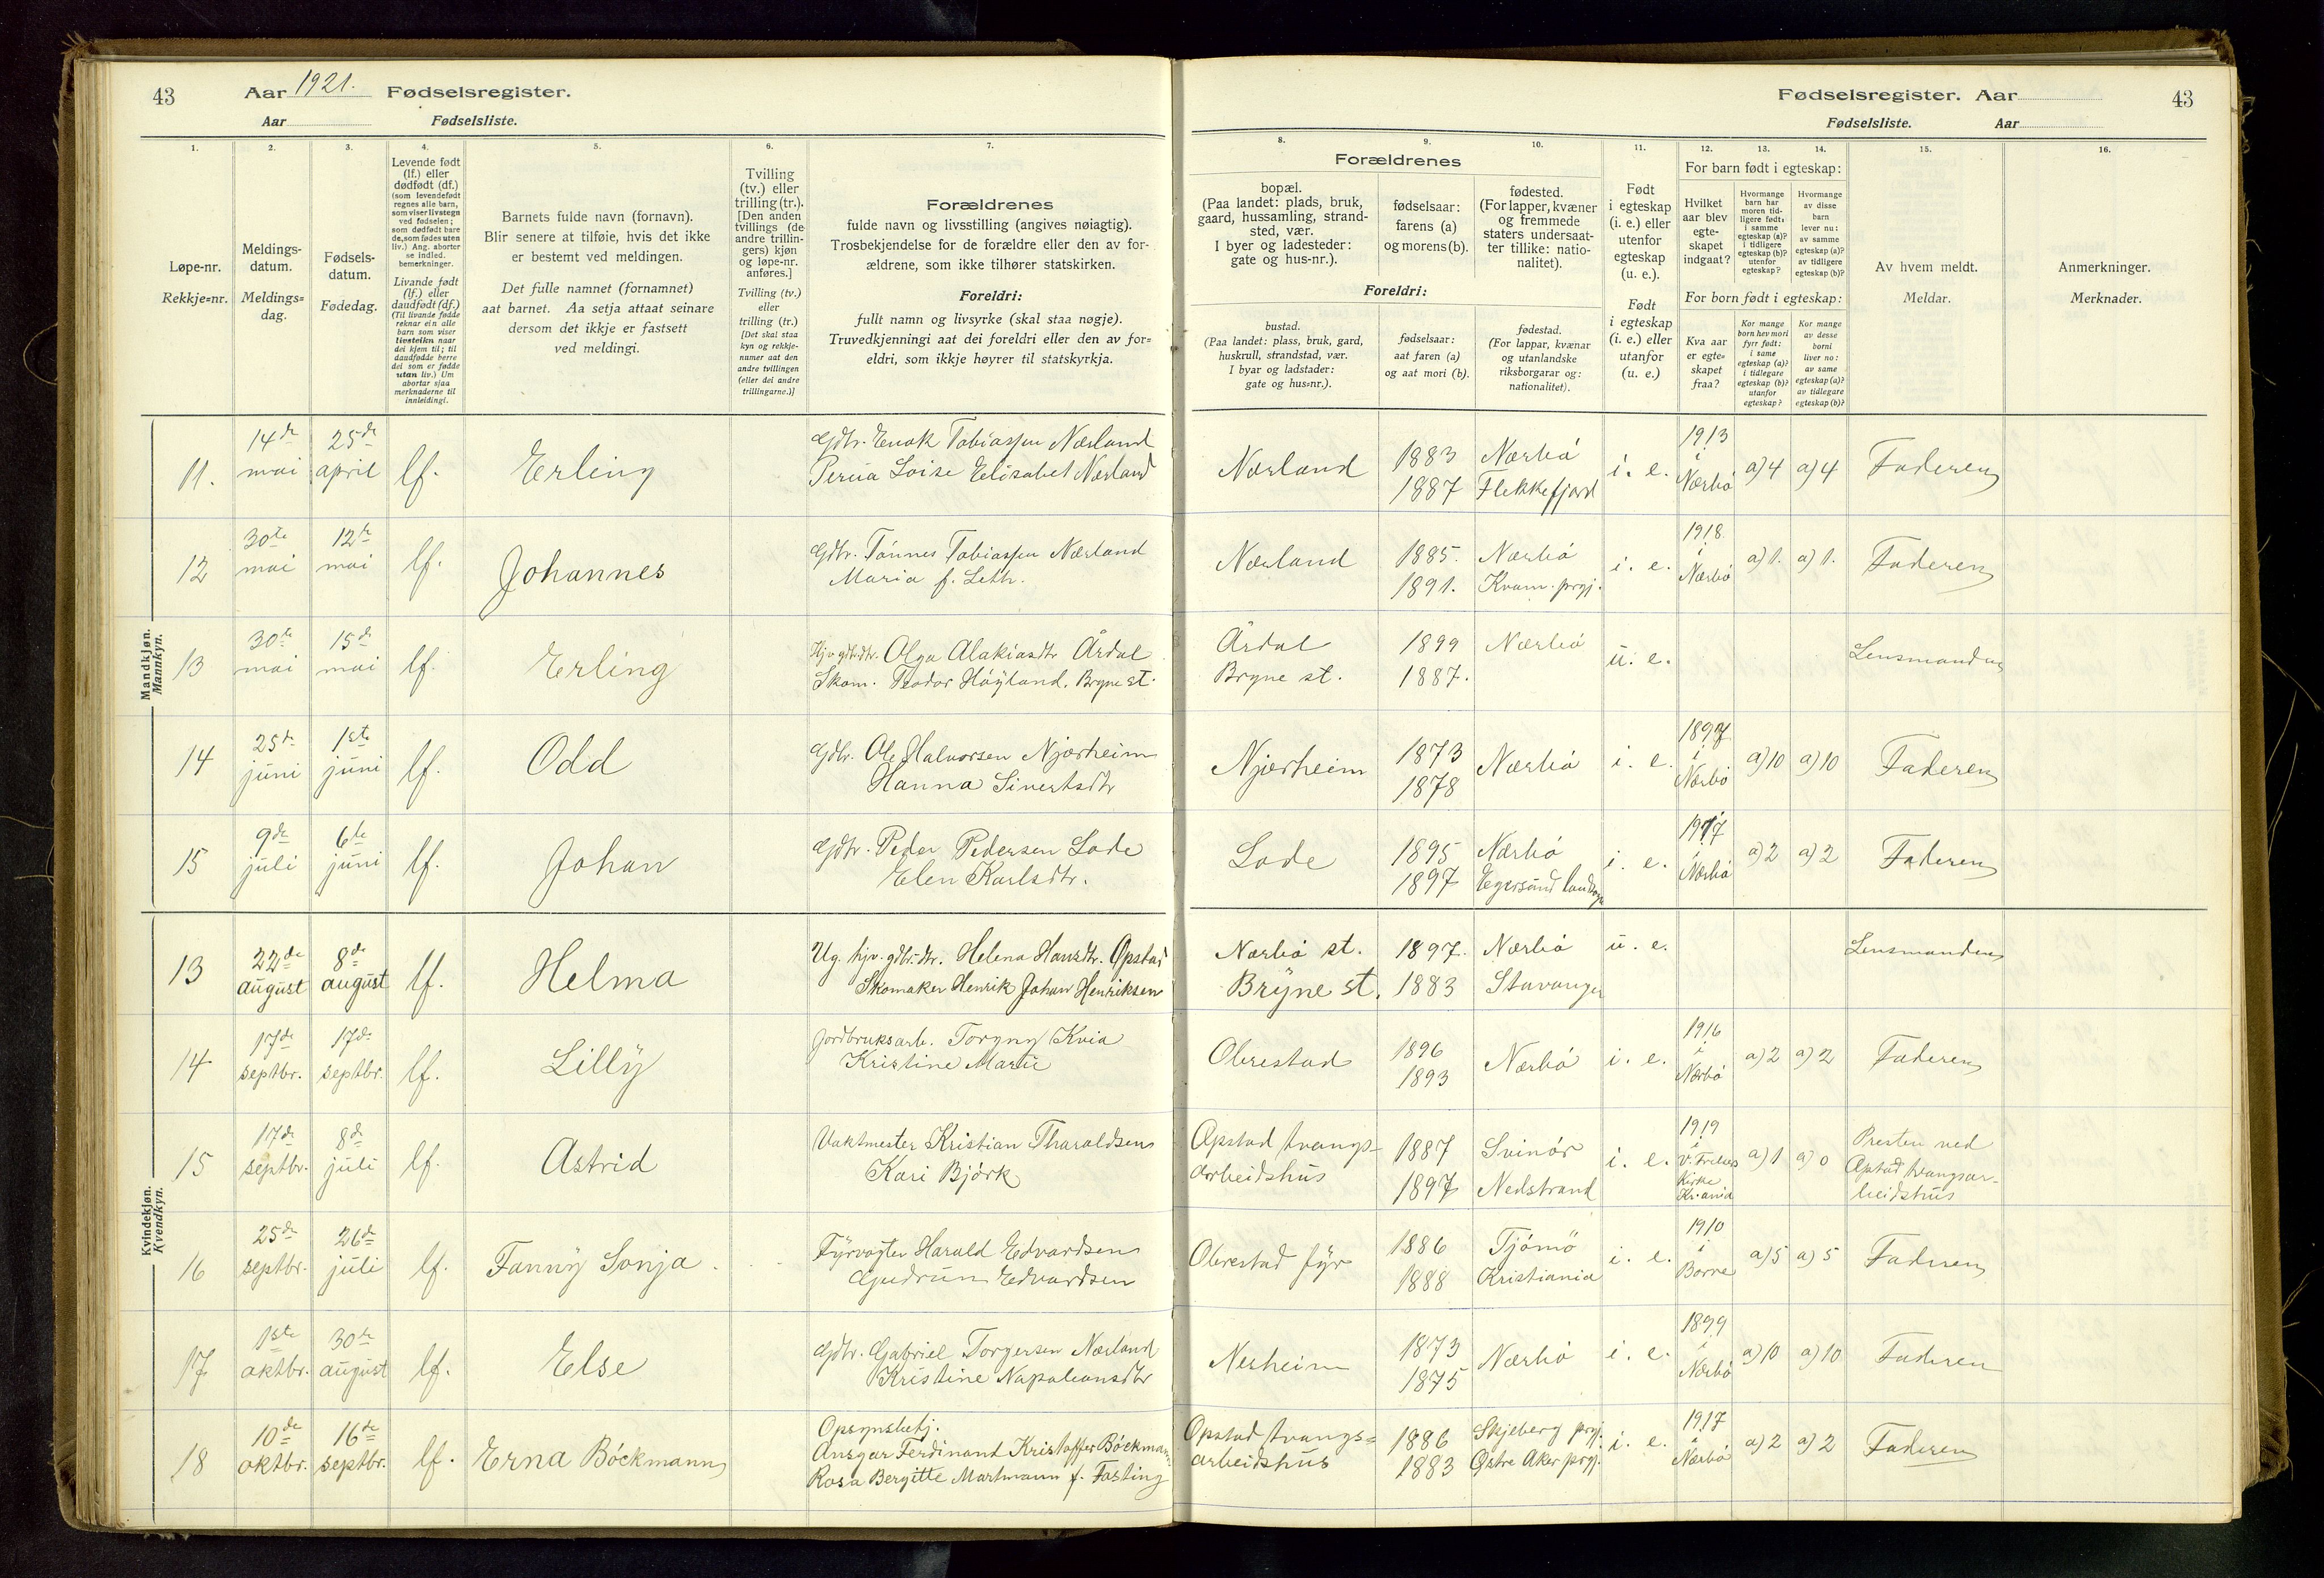 43
Aar 1921. Fødselsregister.
Aar Fødselsliste.
Fødselsregister. Aar
43
Fødselsliste. Aar
1.
Løpe-nr.
Rekkje=nr.
2.
Meldings-
datum.
Meldings=
dag.
3.
Fødsels-
datum.
Fødedag.
4.
Levende født
(lf.) eller
dødfødt (df.)
(som levendefødt
regnes alle barn,
som viser livstegn
ved fødselen;
som dødfødt bare
de, som fødes uten
liv.) Ang. aborter
se indled.
bemerkninger.
Livande født
(lf.) eller
daudfødt (df.)
(Til livande fødde
reknar ein alle
barn som viser
livsteikn naar
dei kjem til; til
daudfødde berre
dei som er fødde
utan liv.) Um
abortar sjaa
merknaderne til
innleidingi.
5.
Barnets fulde navn (fornavn).
Blir senere at tilføie, hvis det ikke
er bestemt ved meldingen.
Det fulle namnet (fornamnet)
aat barnet. Aa setja attaat seinare
dersom det ikkje er fastsett
ved meldingi.
6.
Tvilling
(tv.) eller
trilling (tr.).
[Den anden
tvillings (de
andre trillin-
gers) kjøn
og løpe-nr.
anføres.]
Tvilling (tv.)
eller
trilling (tr.)
[Det skal staa
kyn og rekkje-
numer aat den
andre tvillingen
(eller dei andre
trillingarne.)]
7.
Forældrenes
fulde navn og livsstilling (angives nøiagtig).
Trosbekjendelse for de forældre eller den av for-
ældrene, som ikke tilhører statskirken.
Foreldri:
fullt namn og livsyrke (skal staa nøgje).
Truvedkjenningi aat dei foreldri eller den av for=
eldri, som ikkje høyrer til statskyrkja.
8.
Forældrenes
bopæl.
(Paa landet: plads, bruk,
gaard, hussamling, strand-
sted, vær.
I byer og ladesteder:
gate og hus-nr.).
Foreldri:
bustad.
(Paa landet: plass, bruk, gard,
huskrull, strandstad, vær.
I byar og ladstader:
gate og hus=nr.).
9.
fødselsaar:
farens (a)
og morens (b).
fødselsaar:
aat faren (a)
og aat mori (b).
10.
fødested.
(For lapper, kvæner
og fremmede
staters undersaat-
ter tillike: natio-
nalitet).
fødestad.
(For lappar, kvænar
og utanlandske
riksborgarar og:
nationalitet).
11.
Født
i egteskap
(i. e.) eller
utenfor
egteskap
(u. e.).
Født
i egteskap
(i. e.) eller
utanfor
(u. e.)
12. 13. 14.
For barn født i egteskap:
Hvilket
aar blev
egte-
skapet
indgaat?
Hvormange
barn har
moren tid-
ligere født:
i samme
egteskap (a)?
i tidligere
egteskap (b)?
utenfor
egteskap?
Hvormange
av disse
barn
lever nu:
av samme
egteskap (a)?
av tidligere
egteskap (b)?
For born født i egteskap:
Kva aar
er egte=
skapet
fraa?
Kor mange
born hev mori
fyrr født:
i same
egteskap (a)?
i tidlegare
egteskap (b)?
utanfor
egteskap?
Kor mange
av desse
borni
liver no:
av same
egteskap (a)?
av tidlegare
egteskap (b)?
15.
Av hvem meldt.
Meldar.
16.
Anmerkninger.
Merknader.
Mandkjøn.
Mannkyn.
11. 14de mai 25de april lf. Erling
Gdbr. Enok Tobiassen Nærland
Loise Elisabet Nærland
Nærland 1883 1887 Nærbö Flekkefjord i. e. 1913 i Nærbö a) 4 a) 4 Faderen
12 30te mai 12te mai lf. Johannes
Gdbr. Tönnes Tobiassen Nærland
Maria f. Leth.
Nærland 1885. 1891. Nærbö Kvam prgj. i. e. 1918. i Nærbö a) 1. a) 1. Faderen
13 30te mai 15de mai lf. Erling
Hjv. gdbr.dtr. Olga Alakiasdtr Årdal
Skom. Teodor Höyland, Bryne st.
Årdal 1899 Nærbö
Bryne st. 1887. u. e. Lensmanden
14 25de juni 1ste juni lf. Odd
Gdbr. Ole Halvorsen Njærheim
Hanna Sivertsdtr
Njærheim 1873 1878 Nærbö i. e. 1897 i Nærbö a) 10 a) 10 Faderen
15 9de juli 6te juni lf. Johan
Gdbr. Peder Pedersen Lode
Elen Karlsdtr.
Lode 1895 1897 Nærbö Egersund landsogn i. e. 1917 i Nærbö a) 2 a) 2 Faderen
Kvindekjøn.
Kvendkyn.
13 22de august 8de august lf. Helma
Ug. hjv. gdbr.dtr. Helena Hansdtr. Opstad
Skomaker Henrik Johan Henriksen
Nærbö st. 1897. Nærbö u. e. Lensmanden
Bryne st. 1883 Stavanger
14 17de septbr. 17de septbr. lf. Lilly
Jordbruksarb. Torgny Kvia
Kristine Marie
Obrestad 1896 1893 Nærbö i. e. 1916 i Nærbö a) 2 a) 2 Faderen
15 17de septbr. 8de juli lf. Astrid
Vaktmester Kristian Tharaldsen
Kari Björk
Opstad tvangs-
arbeidshus 1887 1897 Svinör Nedstrand i. e. 1919 i V. Frelsers Kirke Kr.ania a) 1 a) 0
Presten ved
Opstad tvangsar-
beidshus
16 25de septbr. 26de juli lf. Fanny Sonja.
Fyrvogter Harald Edvardsen
Gudrun Edvardsen
Obrestad fyr 1886 1888 Tjömö Kristiania i. e. 1910 i Borre a) 5 a) 5 Faderen
17 1ste oktbr. 30te august lf. Else
Gdbr. Gabriel Torgersen Nærland
Kristine Napoleonsdtr
Nerheim 1873 1875 Nærbö i. e. 1899 i Nærbö a) 10 a) 10 Faderen
18 10de oktbr. 16de septbr. lf. Erna Böckmann
Opsynsbetj.
Ansgar Ferdinand Kristoffer Böckmann
Rosa Bergitte Martmann f. Fasting
Opstad tvangs=
arbeidshus 1886 1883 Skjeberg prgj. Østre Aker prgj. i. e. 1917 i Nærbö a) 2 a) 2 Faderen